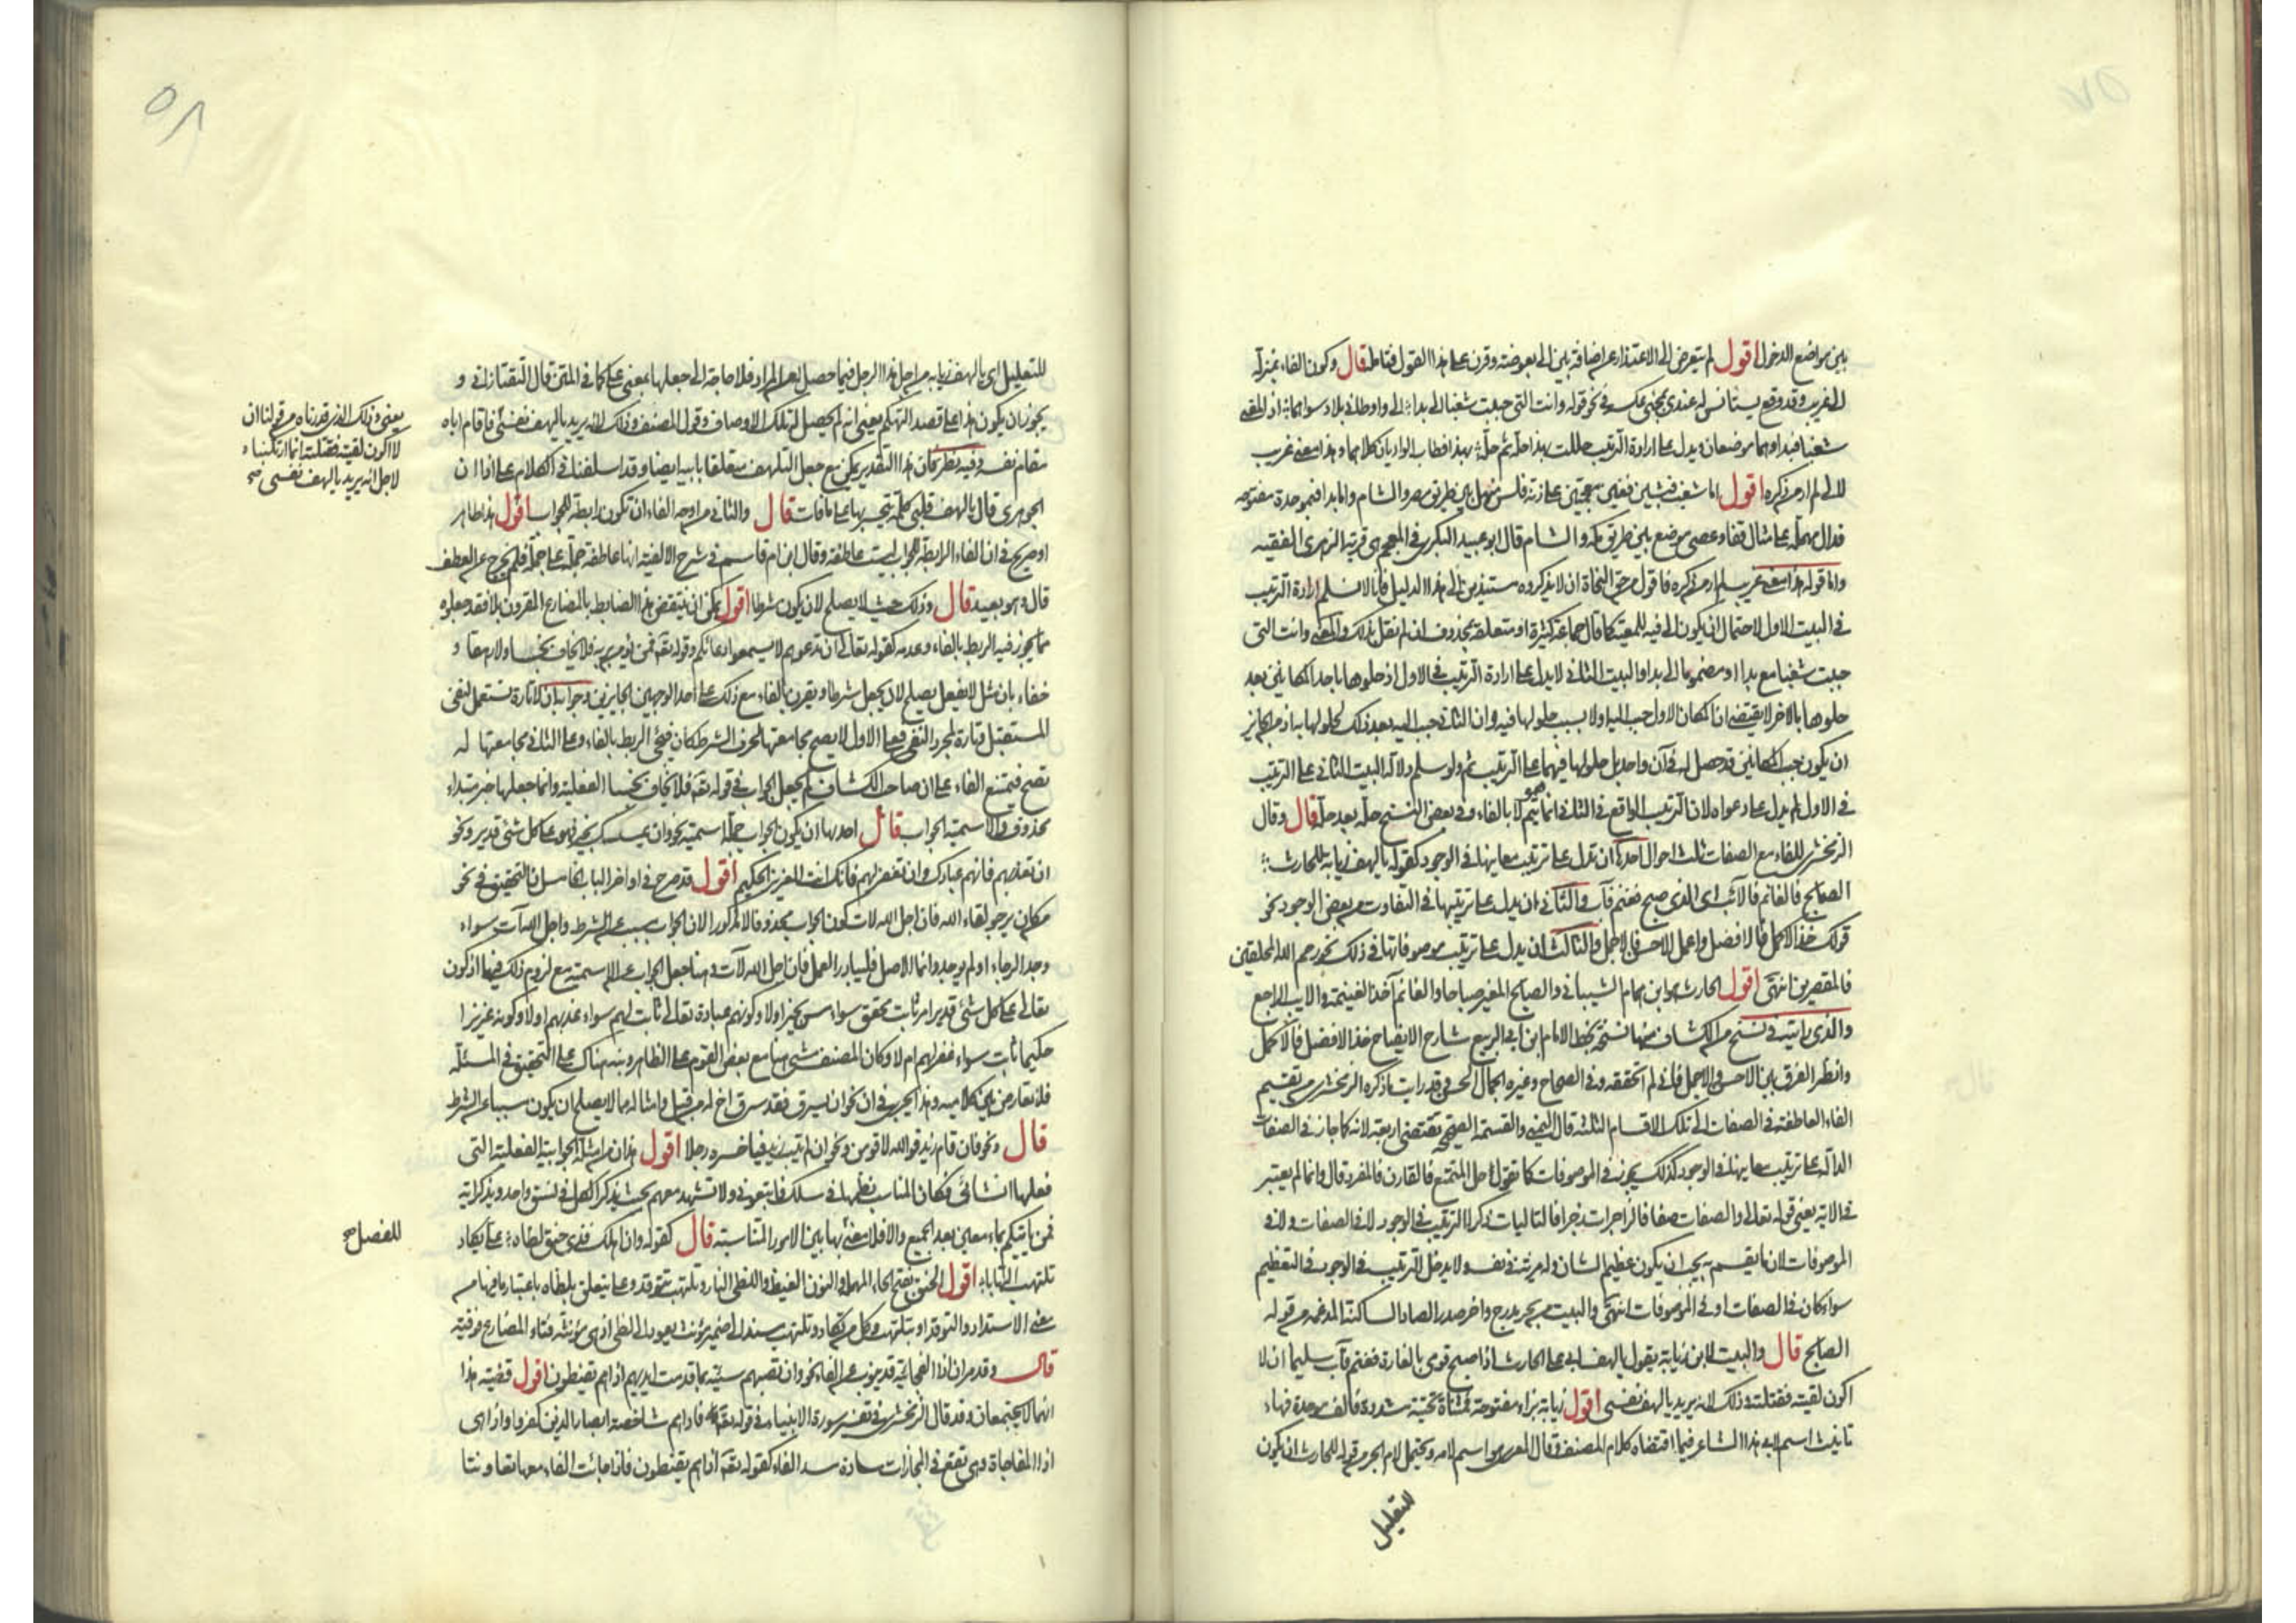 بين مواضع الدخول اقول لم يتعرض الى الاعتذار عن اضافة بين الى بعوضة وقرن على هذا القول فتامل قال وكون الفاء بمنزلة
الى غريب وقد وقع يستانس له عندى بمجئ عكسه فى نحو قوله وانت التى حببت شغبا الى بدا الى واوطانى بلاد سواهما اذ المعنى
شغبا فبدا وهما موضعان ويدل على ارادة الترتيب حللت بهذا حلة ثم حلة بهذا فطاب الواديان كلاهما وهذا معنى غريب
لالى لم ار من ذكره اقول اما شغب فبشين فغين معجمتين على زنة فلس منهل بين طريق مصر والشام واما بدا فبموحدة مفتوحة
فدال مهملة على مثال قفا وعصى موضع بين طريق مكة والشام قال ابو عبيد البكرى فى المعجم هى قرية الزهرى الفقيه
واما قوله هذا معنى غريب لم ار من ذكره فاقول من حق النحاة ان لا يذكروه مستندين الى هذا الدليل فانا لا نسلم ارادة الترتيب
فى البيت الاول لاحتمال ان يكون الى فيه للمعية كما قال جماعة كثيرة او متعلقة بمحذوف ان لم نقل بذلك والمعنى وانت التى
حببت شغبا مع بدا او مضموما الى بدا والبيت الثانى لا يدل على ارادة الترتيب فى الاول اذ حلولها باحد المكانين بعد
حلولها بالاخر لا يقتضى ان المكان الاول حبب اليه اولا بسبب حلولها فيه وان الثانى حبب اليه بعد ذلك لحلولها به اذ من الجايز
ان يكون حب المكانين قد حصل له فى آن واحد بل حلولها فيهما على الترتيب ثم ولو سلم دلالة البيت الثانى على الترتيب
فى الاول لم يدل على دعواه لان الترتيب الواقع فى الثانى انما هو بثم لا بالفاء وفى بعض النسخ حلة بعد حلة قال وقال
الزمخشرى للفاء مع الصفات ثلث احوال احدها ان تدل على ترتيب معانيها فى الوجود كقوله يا لهف زيابة للحارث
الصابح فالغانم فالآئب اى الذى صبح فغنم فآب والثانى ان يدل على ترتيبها فى التفاوت من بعض الوجوه نحو
قولك خذ الاكمل فالافضل واعمل الاحسن فالاجمل والثالث ان يدل على ترتيب موصوفاتها فى ذلك نحو رحم الله المحلقين
فالمقصرين انتهى اقول الحارث هو ابن همام الشيبانى والصابح المغير صباحا والغانم آخذ الغنيمة والايب الراجع
والذى رايته فى نسخ من الكشاف منها نسخة بخط الامام ابن ابى الربيع شارح الايضاح خذ الافضل فالاكمل
وانظر الفرق بين الاحسن والاجمل فانى لم اتحققه وفى الصحاح وغيره الجمال الحسن وقد رايت ما ذكره الزمخشرى من تقسيم
الفاء العاطفة فى الصفات الى تلك الاقسام الثلثة قال اليمنى والقسمة الصحيحة تقتضى اربعة لانه كما جاز فى الصفات
الدالة على ترتيب معانيها فى الوجود كذلك يجوز فى الموصوفات كما تقول حل المتمتع فالقارن فالمفرد قال وانما لم يعتبر
فى الاية يعنى قوله تعالى والصافات صفا فالزاجرات زجرا فالتاليات ذكرا الترتيب فى الوجود لا فى الصفات ولا فى
الموصوفات لان ما يقسم به يجب ان يكون عظيم الشان وله مزية فى نفسه ولا يدخل لترتيب فى الوجود فى التعظيم
سواء كان فى الصفات او فى الموصوفات انتهى والبيت من بحر مدرج واخر صدر الصاد الساكنة المدغمة من قوله
الصابح قال والبيت لابن زيابة يقول يا لهف ابى على الحارث اذا صبح قومى بالغارة فغنم فآب سليما ان لا
اكون لقيته فقتلته وذلك لانه يريد يا لهف نفسى اقول زيابة بزاء مفتوحة فمثناة تحتية مشددة فالف فموحدة فهاء
تانيث اسم لابى هذا الشاعر فيما اقتضاه كلام المصنف وقال المعرى هو اسم لامه ويحتمل لام الجر من قوله للحارث ان يكون
للتعليل
للتعليل اى يا لهف زيابة من اجل هذا الرجل فيما حصل له من المراد فلا حاجة الى جعلها بمعنى على كما فى المتن قال التفتازانى و
يجوز ان يكون هذا على قصد التهكم يعنى انه لم يحصل له تلك الاوصاف وقول المصنف وذلك لانه يريد يا لهف نفسى فاقام اباه
مقام نفسه فيه نظر فان هذا التقدير يمكن مع جعل التلهف متعلقا بابيه ايضا وقد اسلفنا فى الكلام على اذا ان
الجوهرى قال يا لهف فلان كلمة يتحسر بها على ما فات قال والثانى من اوجه الفاء ان تكون رابطة للجواب اقول هذا ظاهر
او صريح فى ان الفاء الرابطة للجواب ليست عاطفة وقال ابن ام قاسم فى شرح الالفية انها عاطفة جملة على جملة فلم تخرج عن العطف
قال وهو بعيد قال وذلك حيث لا يصلح لان يكون شرطا اقول يمكن ان ينتقض هذا الضابط بالمضارع المقرون بلا فقد جعلوه
مما يجوز فيه الربط بالفاء وعدمه كقوله تعالى ان تدعوهم لا يسمعوا دعائكم وقوله تعه فمن يؤمن بربه فلا يخاف بخسا ولا رهقا و
خفاء بان مثل لا يفعل يصلح لان يجعل شرطا ويقرن بالفاء مع ذلك على احد الوجهين الجايزين وجوابه ان لا تارة تستعمل لنفى
المستقبل وتارة لمجرد النفى فعلى الاول لا يصح مجامعتها لحرف الشرط كان فيجئ الربط بالفاء وعلى الثانى مجامعتها له
تصح فيمتنع الفاء على ان صاحب الكشاف لم يجعل الجواب فى قوله تعه فلا يخاف بخسا الفعلية وانما جعلها خبر مبتداء
محذوف والاسمية الجواب قال احدها ان يكون الجواب جملة اسمية نحو وان يمسسك بخير فهو على كل شئ قدير ونحو
ان تعذبهم فانهم عبادك وان تغفر لهم فانك انت العزيز الحكيم اقول قد صرح فى اواخر الباب الخامس بان التحقيق فى نحو
من كان يرجو لقاء الله فان اجل الله لات كون الجواب محذوفا لا المذكور الان الجواب مسبب عن الشرط واجل الله آت سواء
وجد الرجاء او لم يوجد وانما الاصل فليبادر العمل فان اجل الله لآت وهنا جعل الجواب عن الاسمية مع لزوم ذلك فيها اذ كون
تعالى على كل شئ قدير امر ثابت محقق سواء مس بخير اولا وكونهم عبادة تعالى ثابت لهم سواء عذبهم اولا وكونه عزيزا
حكيما ثابت سواء غفر لهم ام لا وكان المصنف مشى هنا مع بعض القوم على الظاهر ونبه هناك على التحقيق فى المسئلة
فلا تعارض بين كلاميه وهذا يجرى فى ان نحو ان يسرق فقد سرق اخ له من قبل وامثاله مما لا يصلح ان يكون مسببا عن الشرط
قال ونحو فان قام زيد فو الله لاقومن ونحو ان لم يتب زيد فيا خسره رجلا اقول هذان من امثلة الجوابية الفعلية التى
فعلها انشائى فكان المناسب نظمها فى سلك فاتبعونى ولا تشهد معهم بحيث يذكر الكل فى نسق واحد ويذكر اية
فمن ياتيكم بماء معين بعد الجميع والا فلا معنى بها بين الامور المتناسبة قال كقوله وان اهلك فذى حنق لظاه على يكاد
تلتهب التهابا اقول الحنق بفتح الحاء المهملة والنون الغيظ واللظى النار وتلتهب تتوقد وعلى يتعلق بلظاه باعتبار ما فيها من
معنى الاشتداد والتوقد او بتلتهب وكل من تكاد وتلتهب مسند الى ضمير مؤنث يعود الى لظى اذ هى مؤنثة فتاء المضارع فوقية
قال وقد مر ان اذا الفجائية قد ينوب عن الفاء نحو وان تصبهم سيئة بما قدمت ايديهم اذا هم يقنطون اقول قضية هذا
انهما لا يجتمعان وقد قال الزمخشرى فى تفسير سورة الانبياء فى قوله تعه فاذا هى شاخصة ابصار الذين كفروا واذا هى
اذا المفاجاة وهى تقع فى المجازات سادة مسد الفاء كقوله تعه اذا هم يقنطون فاذا جائت الفاء معها تعاونتا
يعنى وذلك الذى قدرناه من قولنا ان
لا اكون لقيته فقتلته انما ارتكبناه
لاجل انه يريد يا لهف نفسى صح
للفصل صح
٥٨